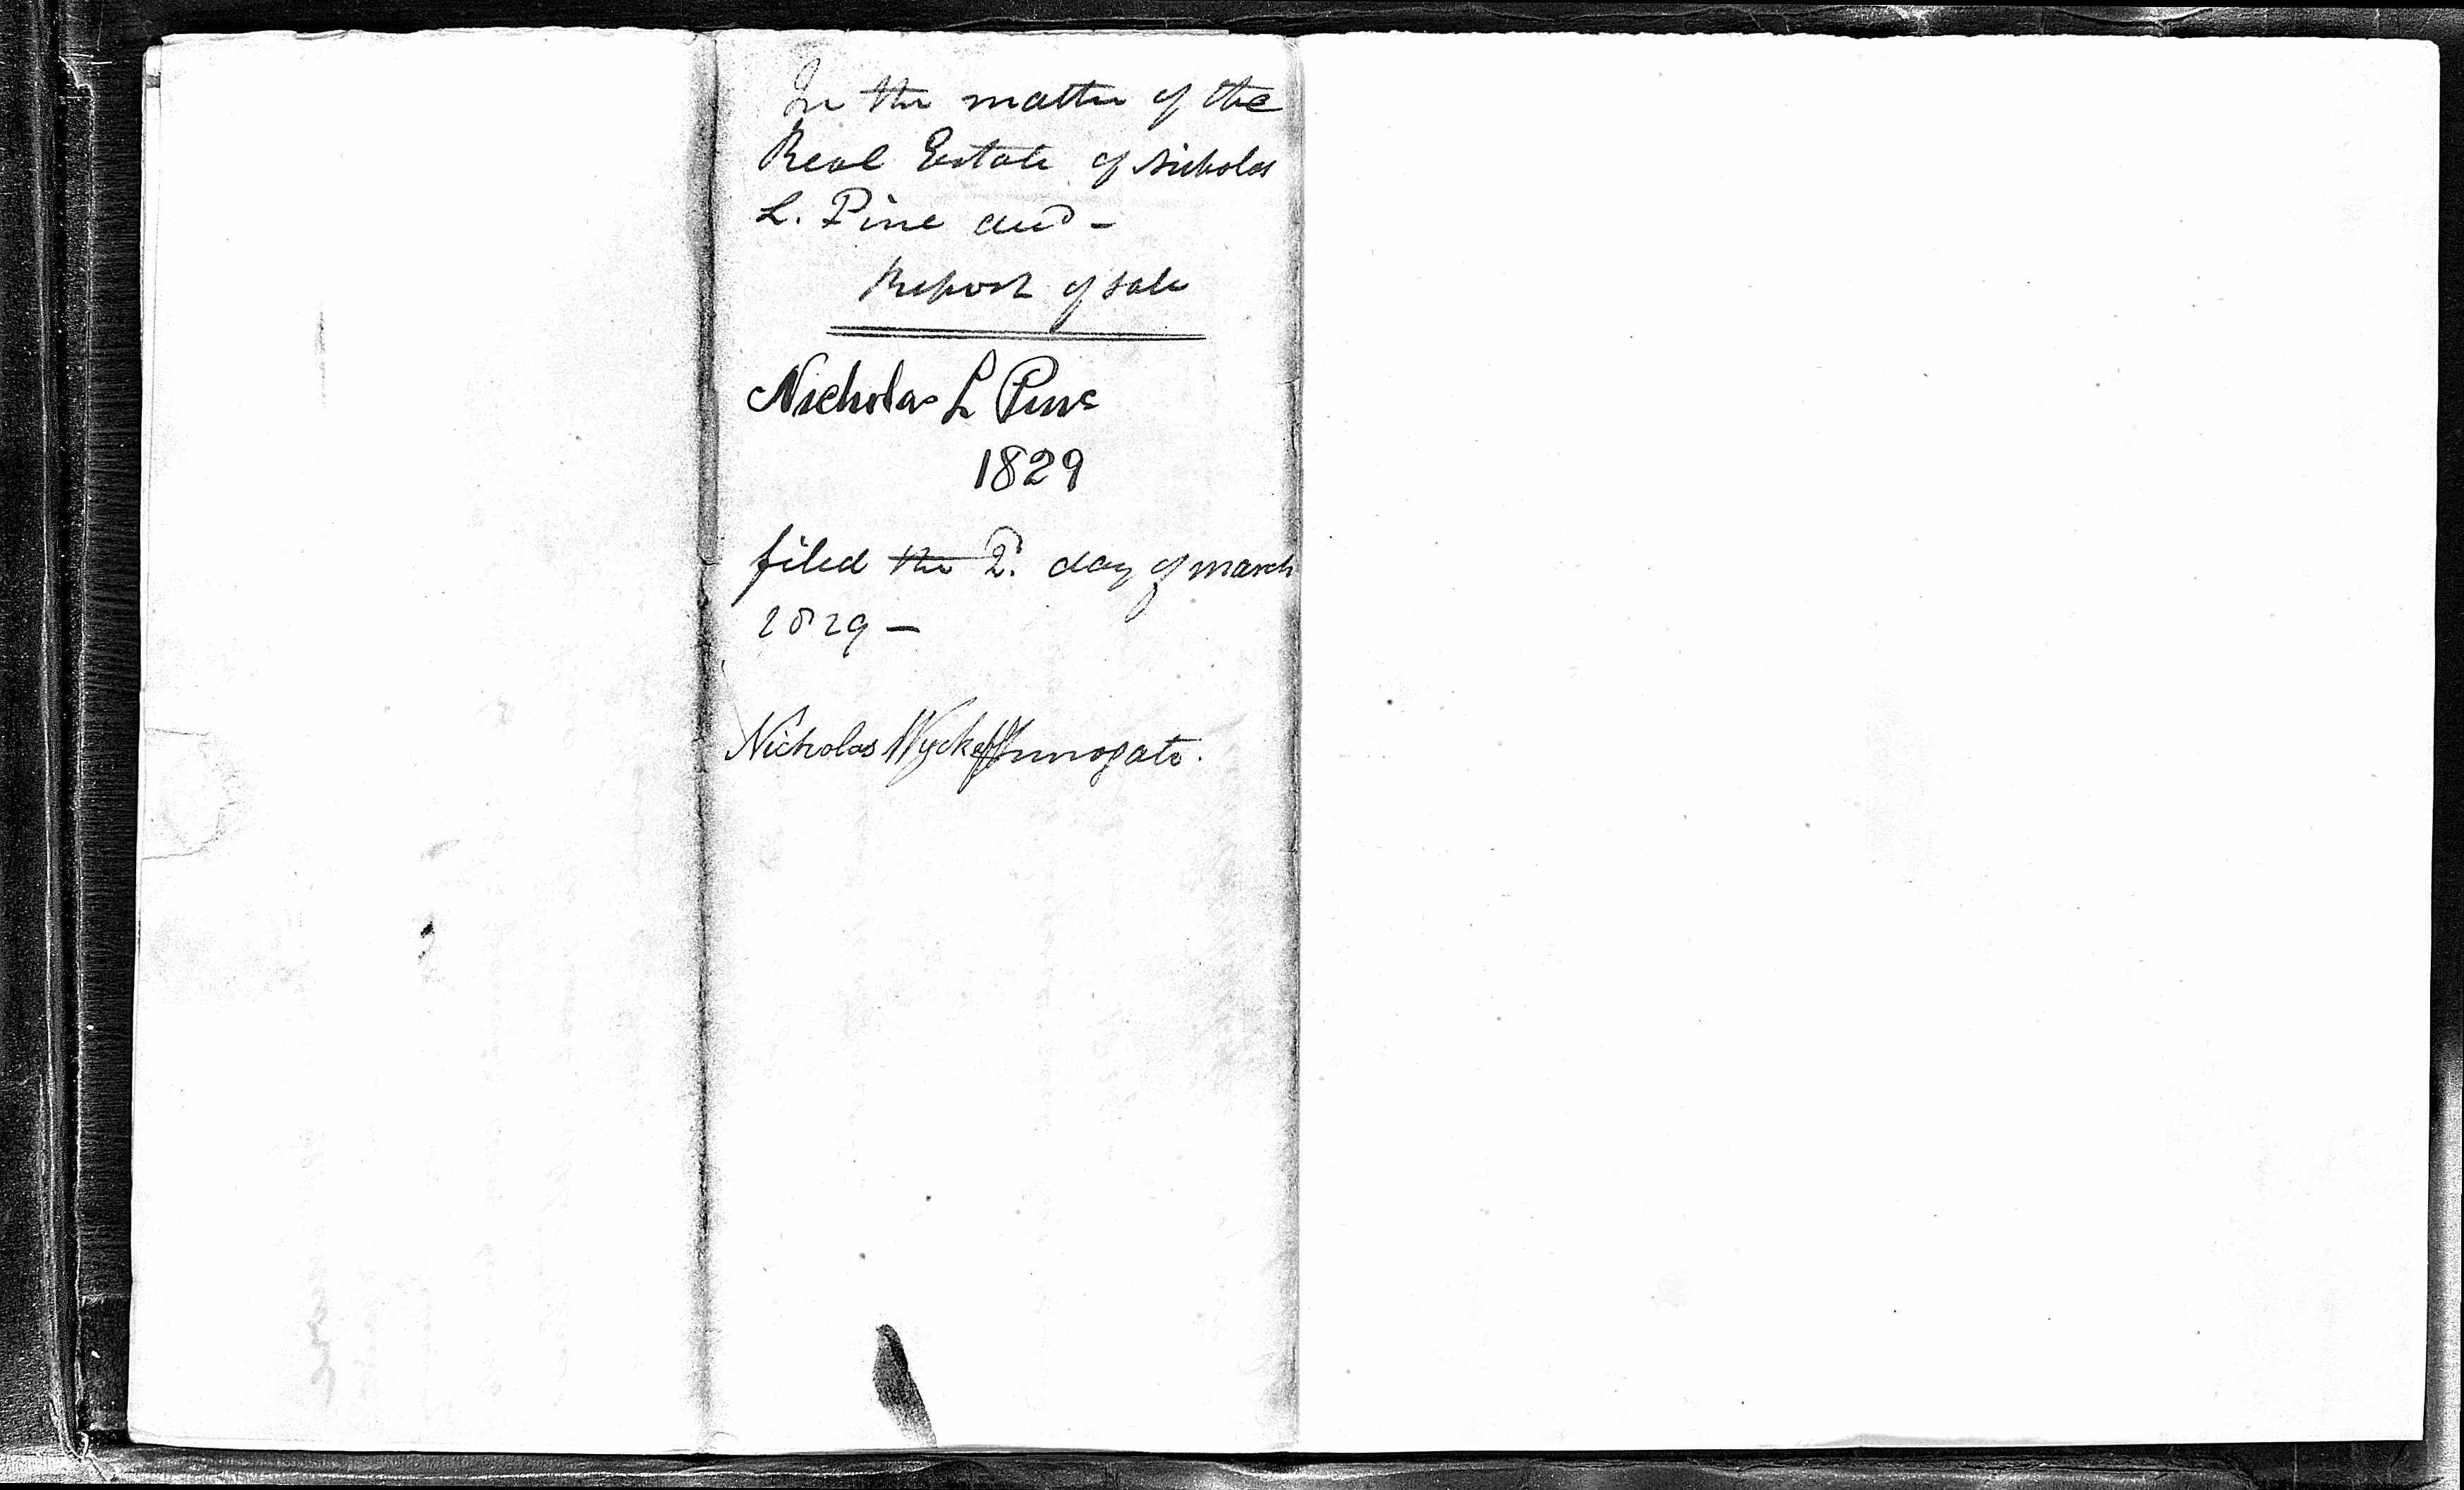 In the matter of the
Real Estate of Nicholas
L. Pine decd -
Report of sale
Nicholas L Pine
1829
filed the 2d. day of march
1829 -
Nicholas Wyckoff Surrogate.